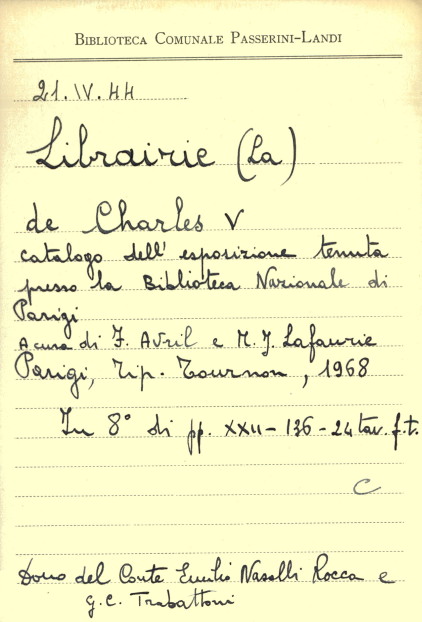 BIBLIOTECA COMUNALE PASSERINI-LANDI
21.IV.44
Librairie (La)
de Charles V
catalogo dell' esposizione tenuta
presso la Biblioteca Nazionale di
Parigi
A cura di F. Avril e M. J. Lafaurie
Parigi, Tip. Tournon, 1968
In 8° di pp. XXII-136-24 tav. f.t.
C
Dono del Conte Emilio Nasalli Rocca e
G.C. Trabattoni